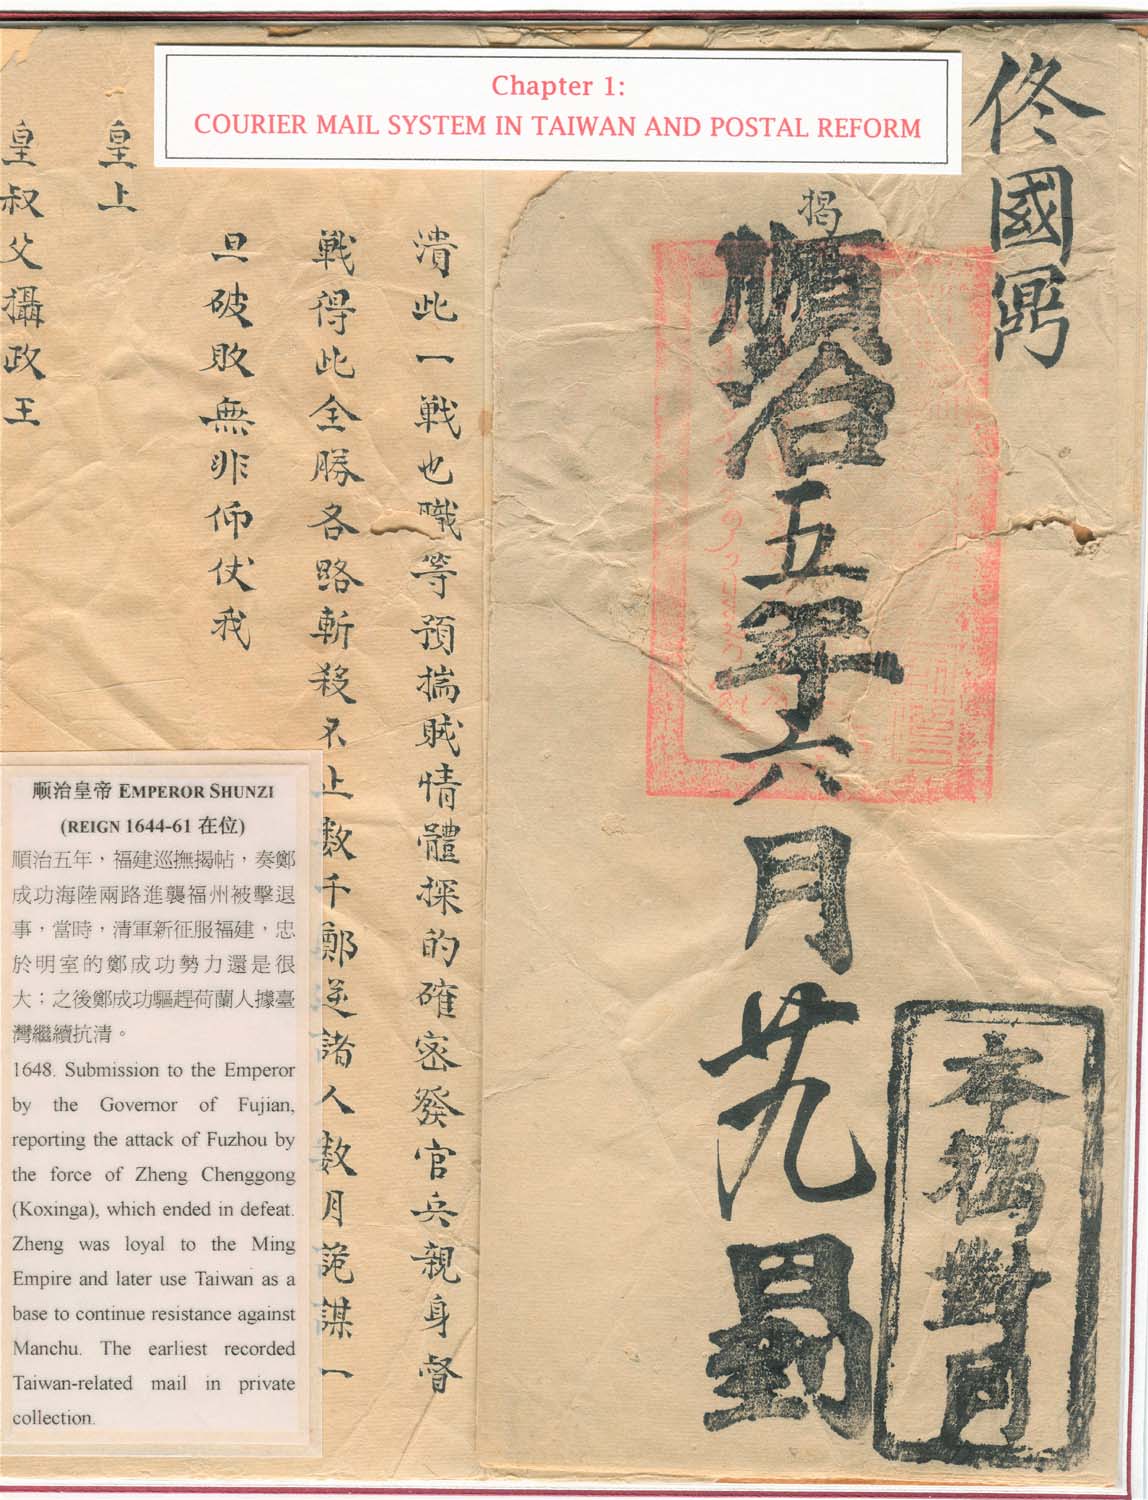 Chapter 1:
COURIER MAIL SYSTEM IN TAIWAN AND POSTAL REFORM
佟國鼐
揭
順治五年六月廿九日到
本稿對同
潰此一戰也職等預揣賊情體探的確密發官兵親身督
戰得此全勝各路斬殺不止數千鄭逆諸人數月詭謀一
旦破敗無非仰仗我
皇上
皇叔父攝政王
顺治皇帝 EMPEROR SHUNZI
(REIGN 1644-61 在位)
順治五年，福建巡撫揭帖，奏鄭
成功海陸兩路進襲福州被擊退
事，當時，清軍新征服福建，忠
於明室的鄭成功勢力還是很
大；之後鄭成功驅趕荷蘭人據臺
灣繼續抗清。
1648. Submission to the Emperor
by the Governor of Fujian,
reporting the attack of Fuzhou by
the force of Zheng Chenggong
(Koxinga), which ended in defeat.
Zheng was loyal to the Ming
Empire and later use Taiwan as a
base to continue resistance against
Manchu. The earliest recorded
Taiwan-related mail in private
collection.